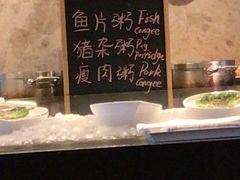 鱼片粥 Fish
congee
猪杂粥 Pig
Porridge
瘦肉粥 Pork
Congee